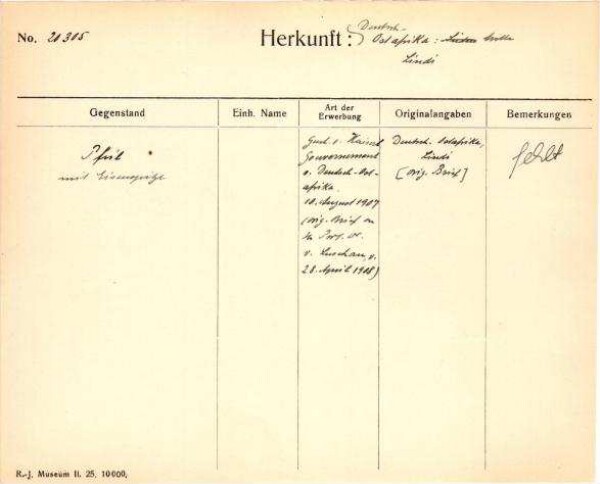 No. 20305
Herkunft: Deutsch-
Ostafrika:
Lindi
Gegenstand
Einh. Name
Art der
Erwerbung
Originalangaben
Bemerkungen
Pfeil
mit Eisenspitze
v. Kaiserl.
Gouvernement
v. Deutsch-Ost-
afrika
10. August 1907
(orig. Brief an
Prof. Dr.
v. Luschan, v.
28. April 1908)
Deutsch. Ostafrika,
Lindi
[orig. Brief]
fehlt
R.-J. Museum II. 25, 10000,